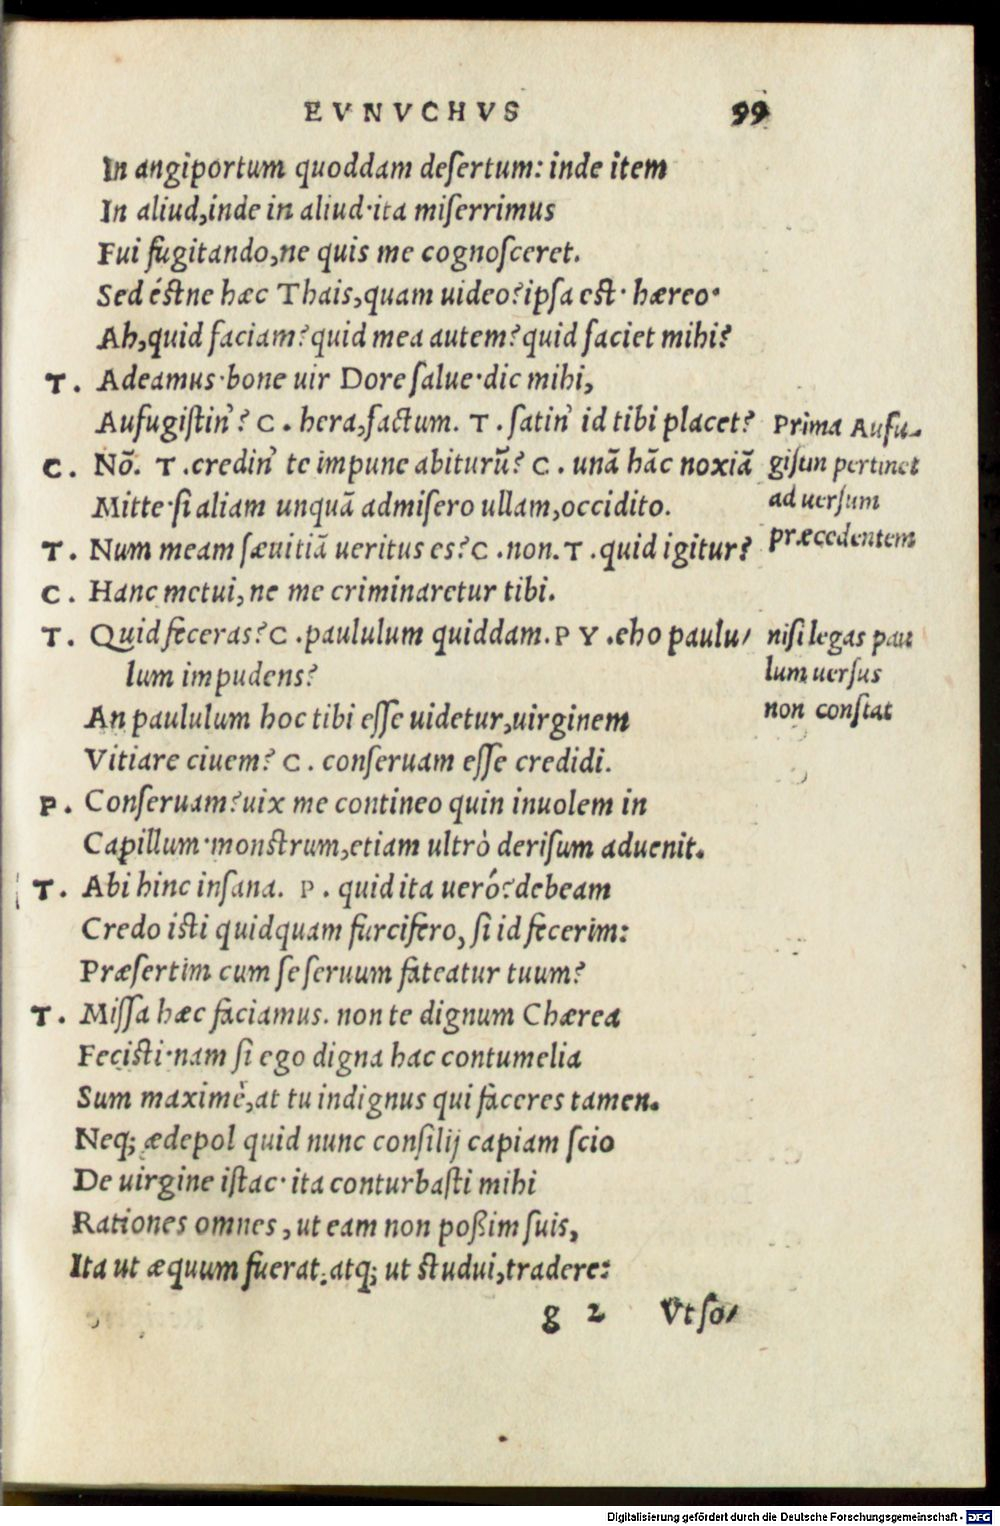 EVNVCHVS 99
In angiportum quoddam deſertum: inde item
In aliud, inde in aliud·ita miſerrimus
Fui fugitando, ne quis me cognoſceret.
Sed éſtne hæc Thais, quam uideo? ipſa eſt· hæreo·
Ah, quid faciam? quid mea autem? quid faciet mihi?
T. Adeamus·bone uir Dore ſalue·dic mihi,
Aufugiſtin'? C. hera, factum. T. ſatin' id tibi placet?
C. Nõ. T. credin' te impune abiturũ? C. unã hãc noxiã
Mitte·ſi aliam unquã admiſero ullam, occidito.
T. Num meam ſæuitiã ueritus es? C. non. T. quid igitur?
C. Hanc metui, ne me criminaretur tibi.
T. Quid feceras? C. paululum quiddam. P Y. eho paulu/
lum impudens?
An paululum hoc tibi eſſe uidetur, uirginem
Vitiare ciuem? C. conſeruam eſſe credidi.
P. Conſeruam? uix me contineo quin inuolem in
Capillum·monſtrum, etiam ultrò deriſum aduenit.
T. Abi hinc inſana. P. quid ita ueró? debeam
Credo iſti quidquam furcifero, ſi id fecerim:
Præſertim cum ſe ſeruum fateatur tuum?
T. Miſſa hæc faciamus. non te dignum Chærea
Feciſti·nam ſi ego digna hac contumelia
Sum maximè, at tu indignus qui faceres tamen.
Neq; ædepol quid nunc conſilij capiam ſcio
De uirgine iſtac· ita conturbaſti mihi
Rationes omnes, ut eam non poßim ſuis,
Ita ut æquum fuerat. atq; ut ſtudui, tradere:
g 2 Vt ſo/
Prima Aufu-
giſtin pertinet
ad uerſum
præcedentem
niſi legas pau
lum uerſus
non conſtat
Digitalisierung gefördert durch die Deutsche Forschungsgemeinschaft - DFG